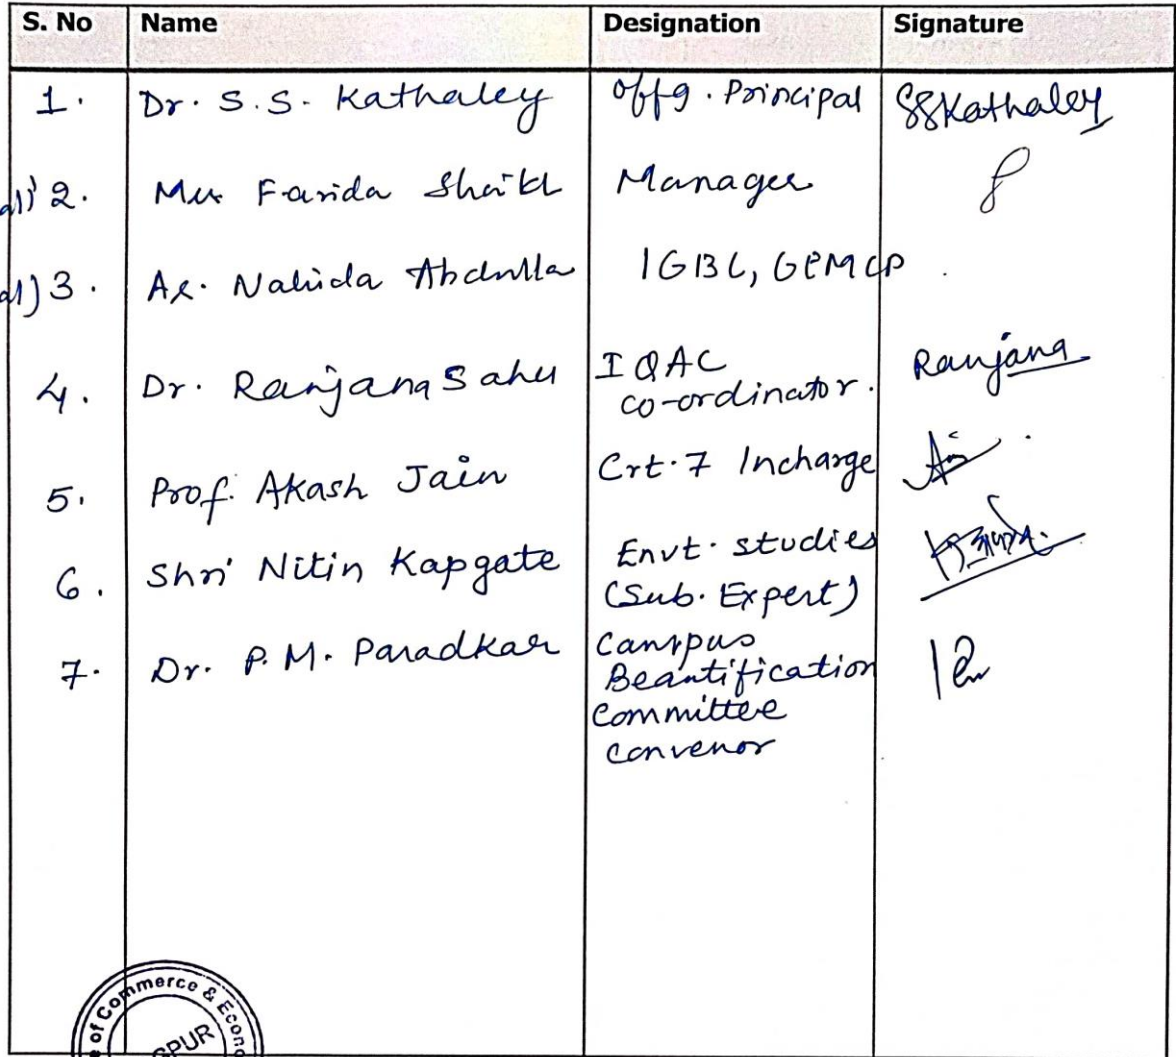 S. No Name Designation Signature
1. Dr. S.S. Kathaley Offg. Principal SSKathaley
2. Farida Shaikh Manager
3. Ar. Nahida Abdulla IGBC, GEMCP.
4. Dr. Ranjana Sahu IQAC Ranjana
co-ordinator.
5. Prof. Akash Jain Crt. 7 Incharge
6. Shri Nitin Kapgate Envt. studies
(Sub. Expert)
7. Dr. P. M. Paradkar Campus
Beautification
Committee
Convenor
of Commerce &